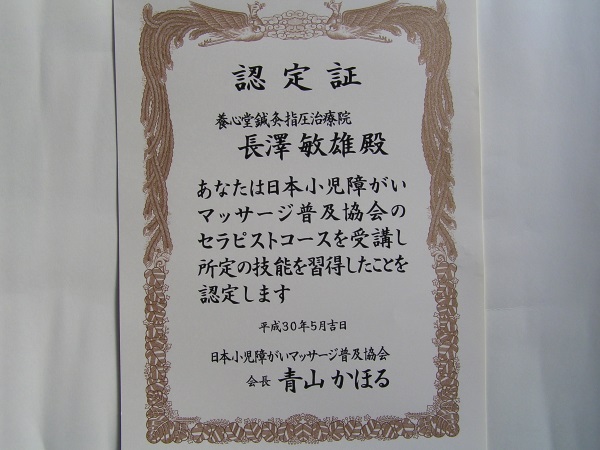 認定証
養心堂鍼灸指圧治療院
長澤敏雄殿
あなたは日本小児障がい
マッサージ普及協会の
セラピストコースを受講し
所定の技能を習得したことを
認定します
平成30年5月吉日
日本小児障がいマッサージ普及協会
会長 青山かほる